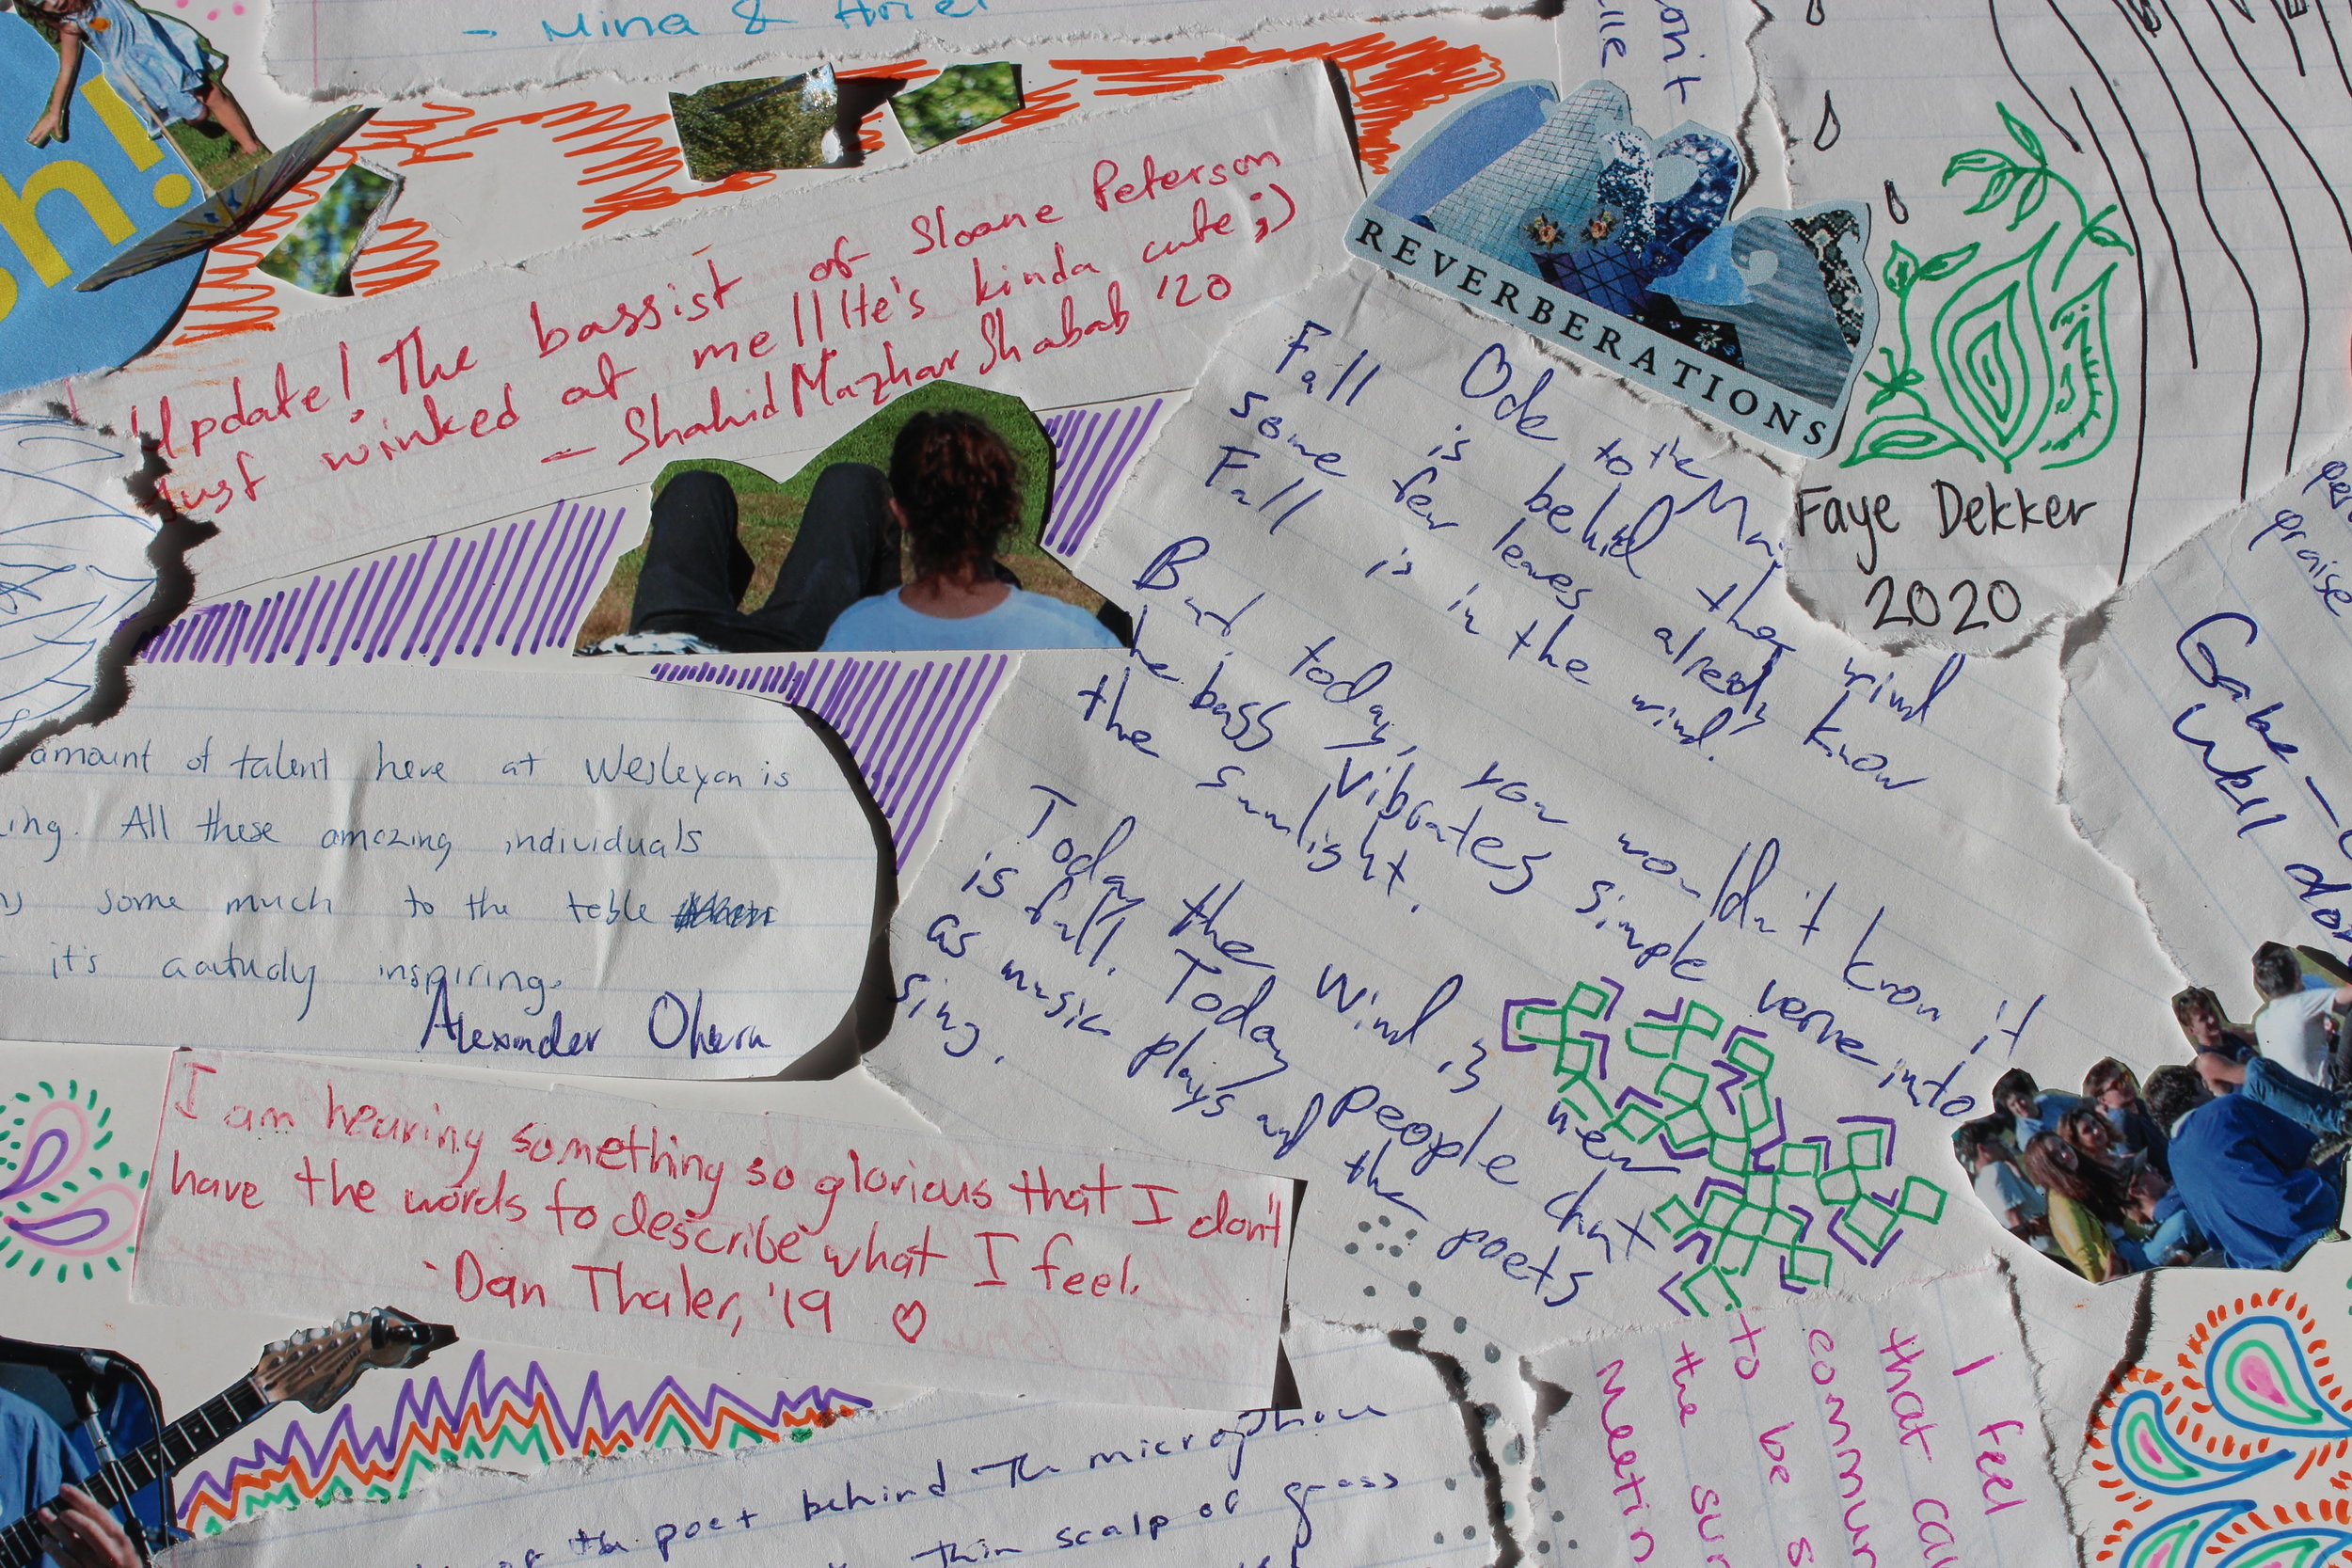 - Mina & Ariel
h!
Update! The bassist of Sloane Peterson
just winked at me!! He's kinda cute ;)
- Shahid Mazhar Shabab '20
REVERBERATIONS
Faye Dekker
2020
Ode to the
Fall is behind that wind
some few leaves already know
Fall is in the wind.
But today, you wouldn't know it
the bass vibrates simple verve into
the sunlight.
Today the wind is new
is fall. Today people chat
as music plays and the poets
sing.
praise
Gabe -
Well don
amount of talent here at Wesleyan is
ing. All these amazing individuals
some much to the table
it's inspiring.
Alexander
I am hearing something so glorious that I don't
have the words to describe what I feel.
- Dan Thaler, '19 ♡
the poet behind the microphone
thin scalp of grass
I feel
that ca
commun
to be s
the sur
meetin